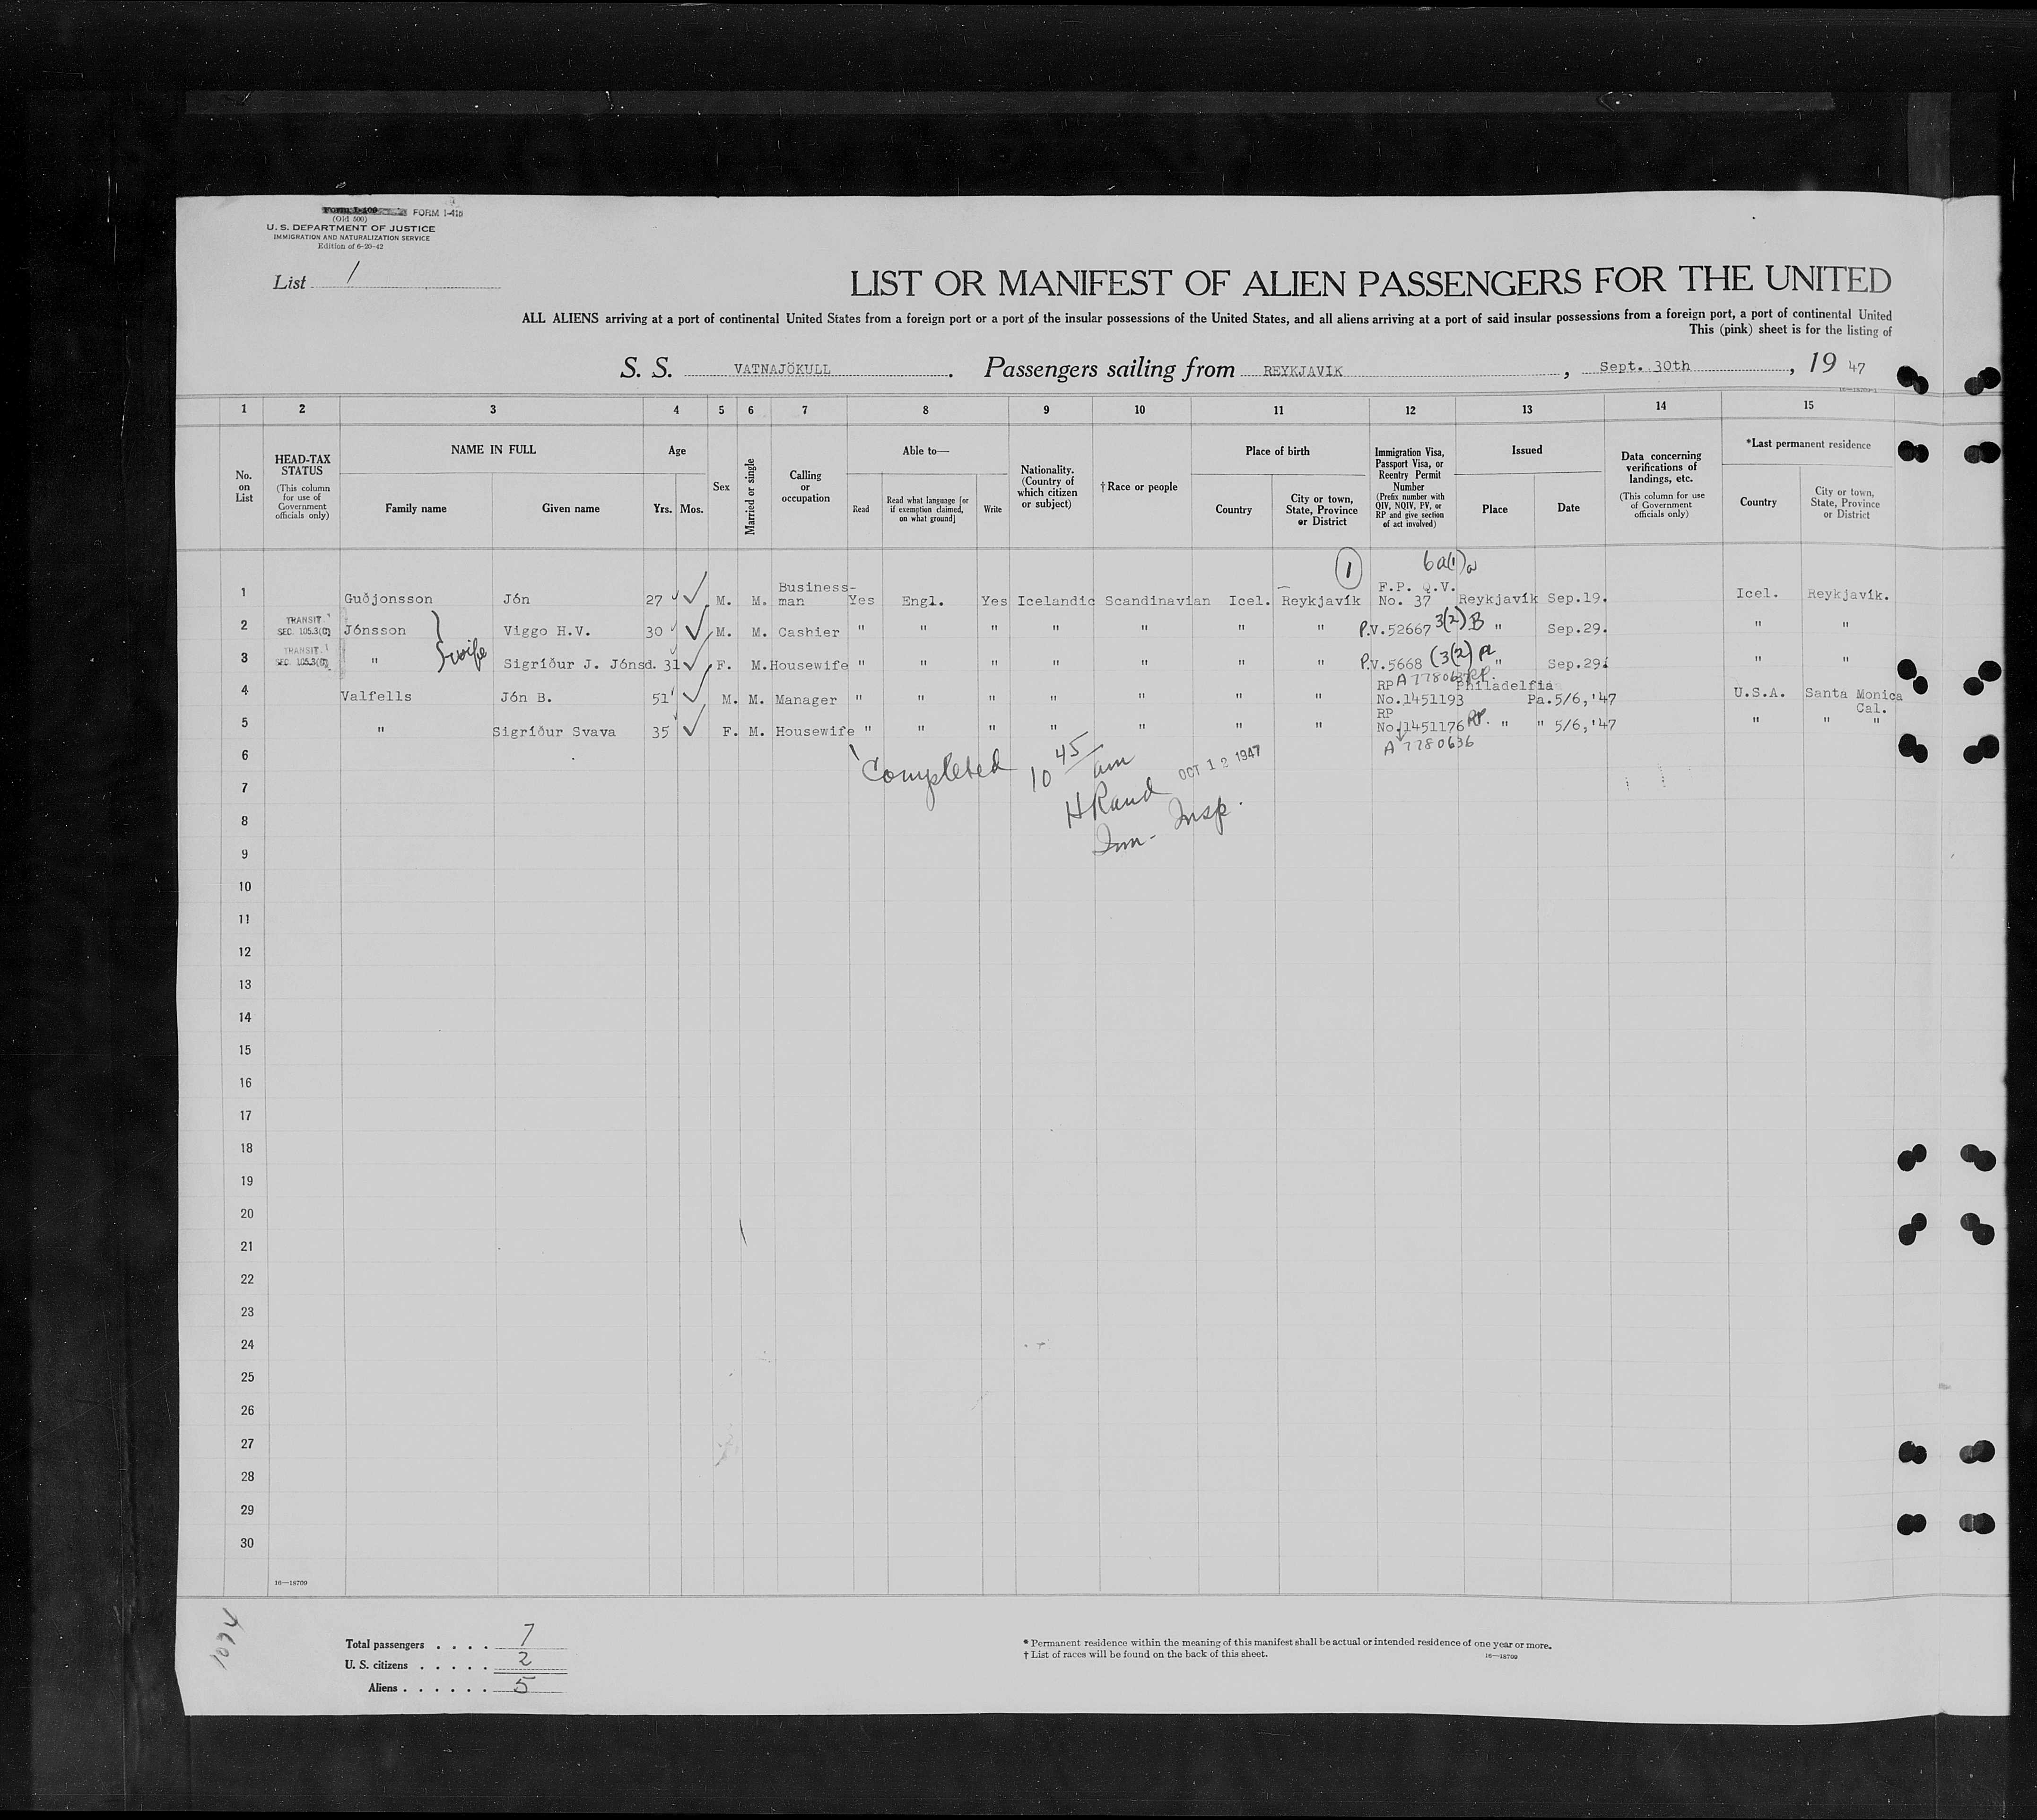 FORM I-415
(Old 500)
U. S. DEPARTMENT OF JUSTICE
IMMIGRATION AND NATURALIZATION SERVICE
Edition of 6-20-42
List 1
LIST OR MANIFEST OF ALIEN PASSENGERS FOR THE UNITED
ALL ALIENS arriving at a port of continental United States from a foreign port or a port of the insular possessions of the United States, and all aliens arriving at a port of said insular possessions from a foreign port, a port of continental United
This (pink) sheet is for the listing of
S. S. VATNAJÖKULL. Passengers sailing from REYKJAVIK, Sept. 30th, 19 47
1 2 3 4 5 6 7 8 9 10 11 12 13 14 15
No. on List
HEAD-TAX STATUS
(This column for use of Government officials only)
NAME IN FULL
Family name
Given name
Age
Yrs. Mos.
Sex
Married or single
Calling or occupation
Able to—
Read
Read what language [or if exemption claimed, on what ground]
Write
Nationality. (Country of which citizen or subject)
† Race or people
Place of birth
Country
City or town, State, Province or District
Immigration Visa, Passport Visa, or Reentry Permit Number
(Prefix number with QIV, NQIV, PV, or RP and give section of act involved)
Issued
Place
Date
Data concerning verifications of landings, etc.
(This column for use of Government officials only)
*Last permanent residence
Country
City or town, State, Province or District
1 6a(1)
1 Guðjonsson Jón 27 M. M. Business-man Yes Engl. Yes Icelandic Scandinavian Icel. Reykjavík F.P. Q.V. No. 37 Reykjavík Sep.19. Icel. Reykjavík.
2 TRANSIT SEC. 105.3(C) Jónsson Viggo H.V. 30 M. M. Cashier " " " " " " " P.V.52667 3(2) B " Sep.29. " "
wife
3 TRANSIT SEC. 105.3(C) " Sigríður J. Jónsd. 31 F. M. Housewife " " " " " " " P.V.5668 (3(2) " Sep.29. " "
4 Valfells Jón B. 51 M. M. Manager " " " " " " " RP No.1451193 RP. Philadelfia Pa. 5/6,'47 U.S.A. Santa Monica Cal.
5 " Sigríður Svava 35 F. M. Housewife " " " " " " " RP No.1451176 RP. " " 5/6,'47 " " "
A 7780636
6
7
8
9
10
11
12
13
14
15
16
17
18
19
20
21
22
23
24
25
26
27
28
29
30
Completed 10 45 am OCT 12 1947
H Rand
Imm- Insp.
16—18709
Total passengers . . . . 7
U. S. citizens . . . . . 2
Aliens . . . . . . 5
* Permanent residence within the meaning of this manifest shall be actual or intended residence of one year or more.
† List of races will be found on the back of this sheet.
16—18709